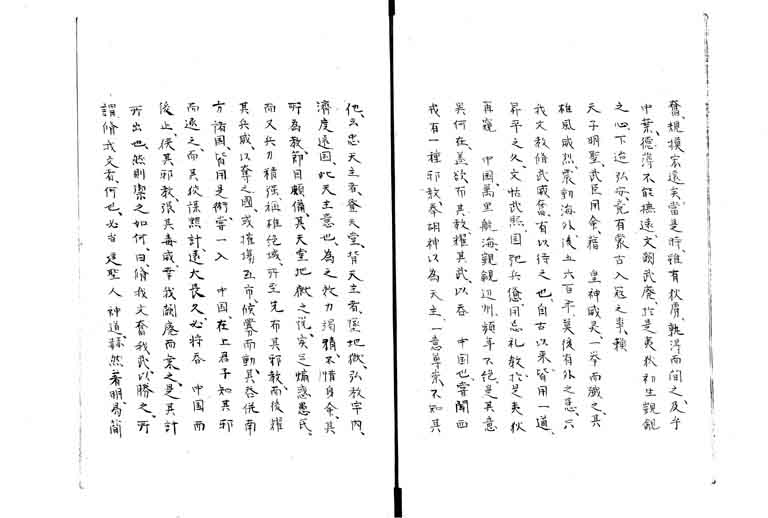 奮、規摸宏遠矣、當是時、雖有狄膚、孰得而間之、及乎
中葉、德澤不能撫遠、文弱武廢、於是夷狄初生覬覦
之心、下迨弘安、竟有蒙古入寇之事、賴
天子明聖、武臣用命、藉 皇神威灵、一挙而殱之、其
雄風威烈、震動海外、後五六百年、莫復有外之患、只
我文教脩、武威奮、有以待之也、自古以來、皆用一道、
昇平之久、文怙武熙、国弛兵偃、用忘礼教、於是夷狄
再窺 中国、萬里航海、覬覦辺州、頻年不絶、是其意
果何在、盖欲布其教、耀其武、以吞 中国也、嘗聞西
戎有一種邪教、奉胡神以為天主、一意尊崇、不知其
他、云忠天主者、登天堂、背天主者、墮地獄、弘教宇内、
濟度遠囯、此天主意也、為之效力竭精、不惜身命、其
所為教、節目頗備、其天堂地獄之説、実足煽惑愚民、
而又兵力積强、稱雄絶域、所至先布其邪教、而後耀
其兵威、以奪之國、或推場互市、候釁而動、其吞併南
方諸国、皆用是術、嘗一入 中国、在上君子、知其邪
而逐之、而其狡謀黠計、遠大長久、必將吞 中国而
後止、使其邪教、張其毒威、我闕廃而乘之、是其計
所出也、然則禦之如何、曰脩我文、奮我武、以勝之、所
謂脩我文者、何也、必当建聖人 神道、赫然著明、為簡